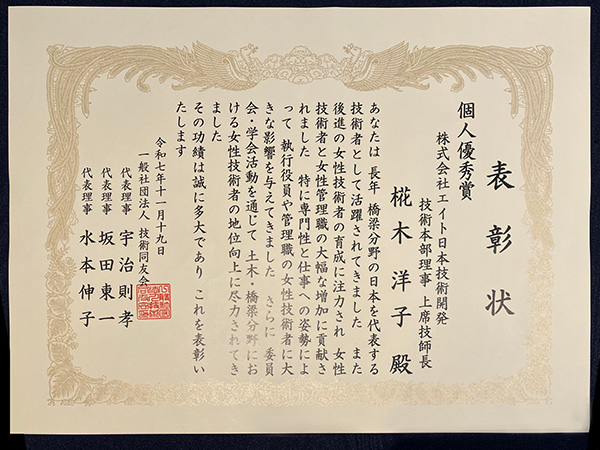 表彰状
個人優秀賞
株式会社エイト日本技術開発
技術本部理事 上席技師長
椛木洋子殿
あなたは 長年 橋梁分野の日本を代表する
技術者として活躍されてきました また
後進の女性技術者の育成に注力され 女性
技術者と女性管理職の大幅な増加に貢献さ
れました 特に専門性と仕事への姿勢によ
って 執行役員や管理職の女性技術者に大
きな影響を与えてきました さらに 委員
会・学会活動を通じて 土木・橋梁分野にお
ける女性技術者の地位向上に尽力されてき
ました
その功績は誠に多大であり これを表彰い
たします
令和七年十一月十九日
一般社団法人 技術同友会
代表理事 宇治則孝
代表理事 坂田東一
代表理事 水本伸子